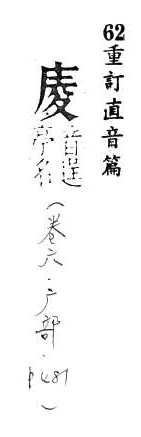 62重訂直音篇
庱
音逞
亭名
(卷六·广部·P481)